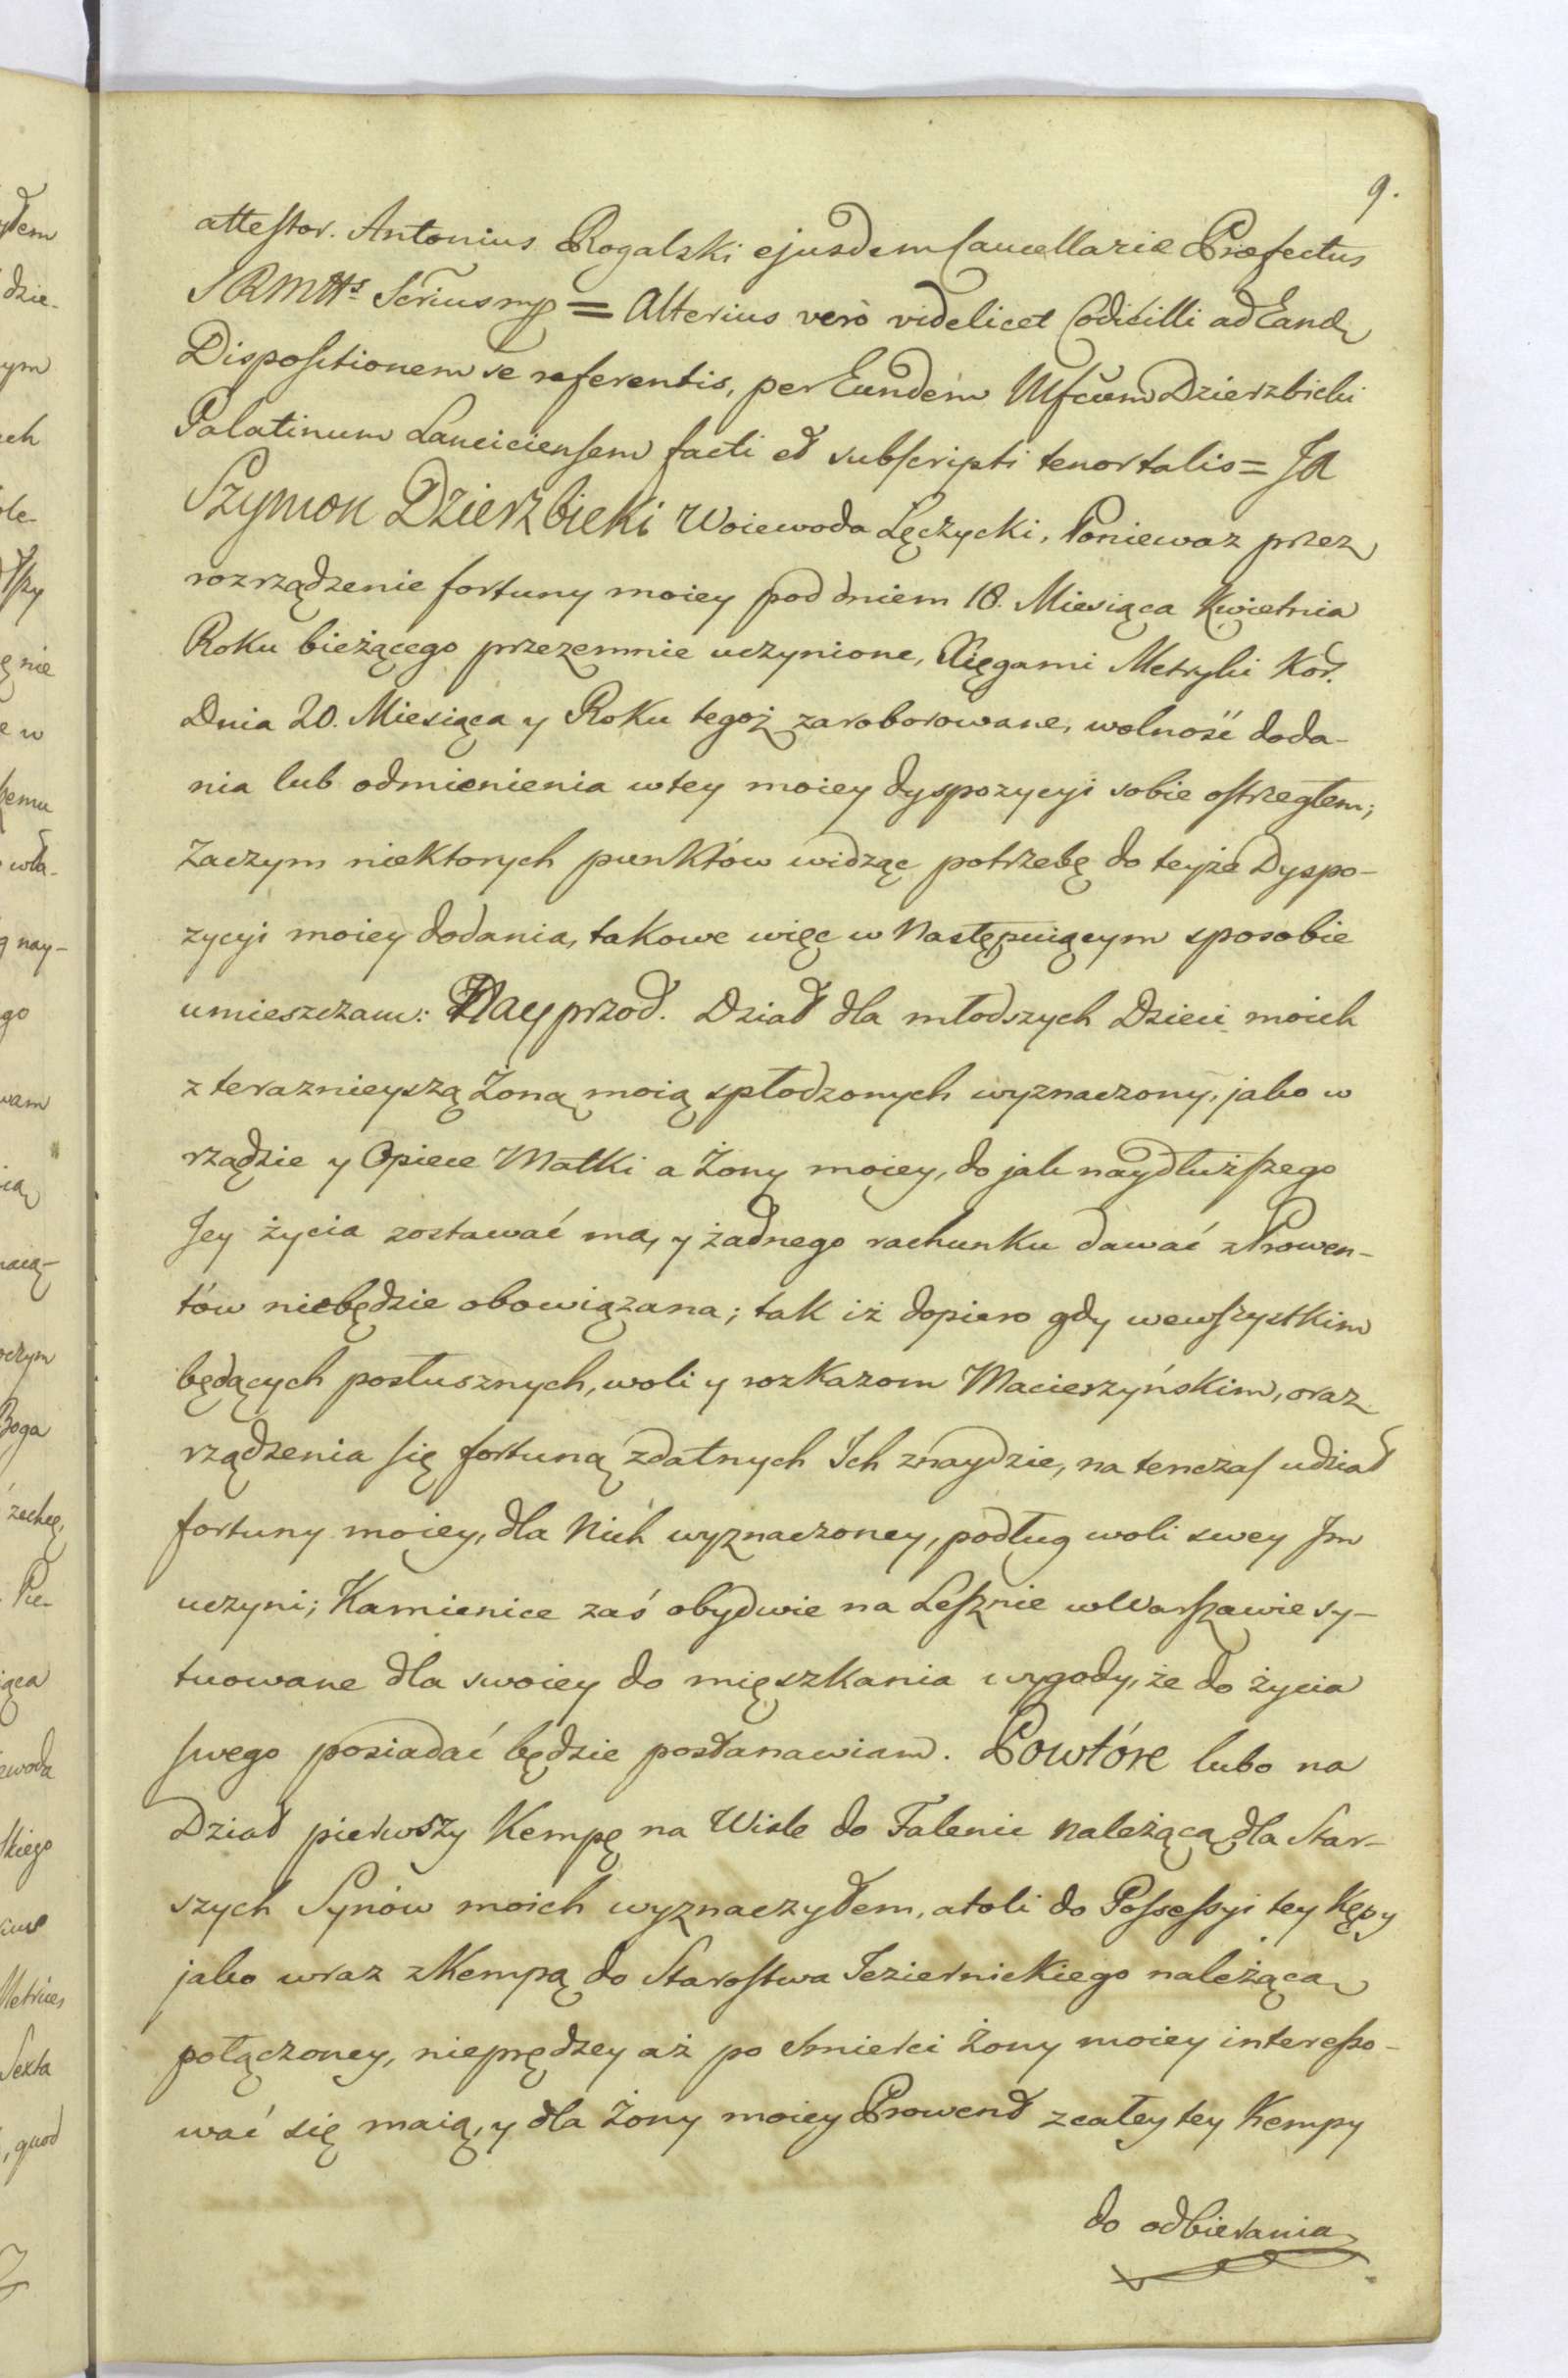 9.
attestor. Antonius Rogalski ejusdem Cancellariæ Præfectus
SRMtts Scriusmp = Alterius verò videlicet Codicilli ad Eand
Dispositionem se referentis, per Eundem Mfcum Dzierzbicki
Palatinum Lanciciensem facti et subscripti tenor talis = Ja
Szymon Dzierzbicki Woiewoda Lęczycki, Poniewaz przez
rozrządzenie fortuny moiey pod dniem 18. Miesiąca Kwietnia
Roku bieżącego przezemnie uczynione, Xięgami Metryki Kor.
Dnia 20. Miesiąca y Roku tegoż zaroborowane, wolność doda-
nia lub odmienienia w tey moiey dyspozycyi sobie ostrzegłem;
Zaczym niektorych punktów widząc potrzebę do teyże Dyspo-
zycyi moiey dodania, takowe więc w Następuiącym sposobie
umieszczam: Nayprzod. Dział dla młodszych Dzieci moich
z teraznieyszą Żoną moią spłodzonych wyznaczony, jako w
rządzie y Opiece Matki a Żony moiey, do jak naydłuższego
Jey życia zostawać ma, y żadnego rachunku dawać z Prowen-
tów niebędzie obowiązana; tak iż dopiero gdy wewszystkim
będących posłusznych, woli y rozkazom Macierzyńskim, oraz
rządzenia się fortuną zdatnych Ich znaydzie, na tenczas udział
fortuny moiey, dla Nich wyznaczoney, podług woli swey Jm
uczyni; Kamienice zaś obydwie na Lesznie w Warszawie sy-
tuowane dla swoiey do mięszkania wygody, że do życia
swego posiadać będzie postanawiam. Powtóre lubo na
Dział pierwszy Kempę na Wisle do Falenic Należącą dla Star-
szych Synów moich wyznaczyłem, atoli do Possessyi tey Kępy
jako wraz z Kempą do Starostwa Jeziernickiego należącą
połączoney, nieprędzey aż po śmierci Żony moiey interesso-
wać się maią, y dla Żony moiey Prowent z całey tey Kempy
do odbierania